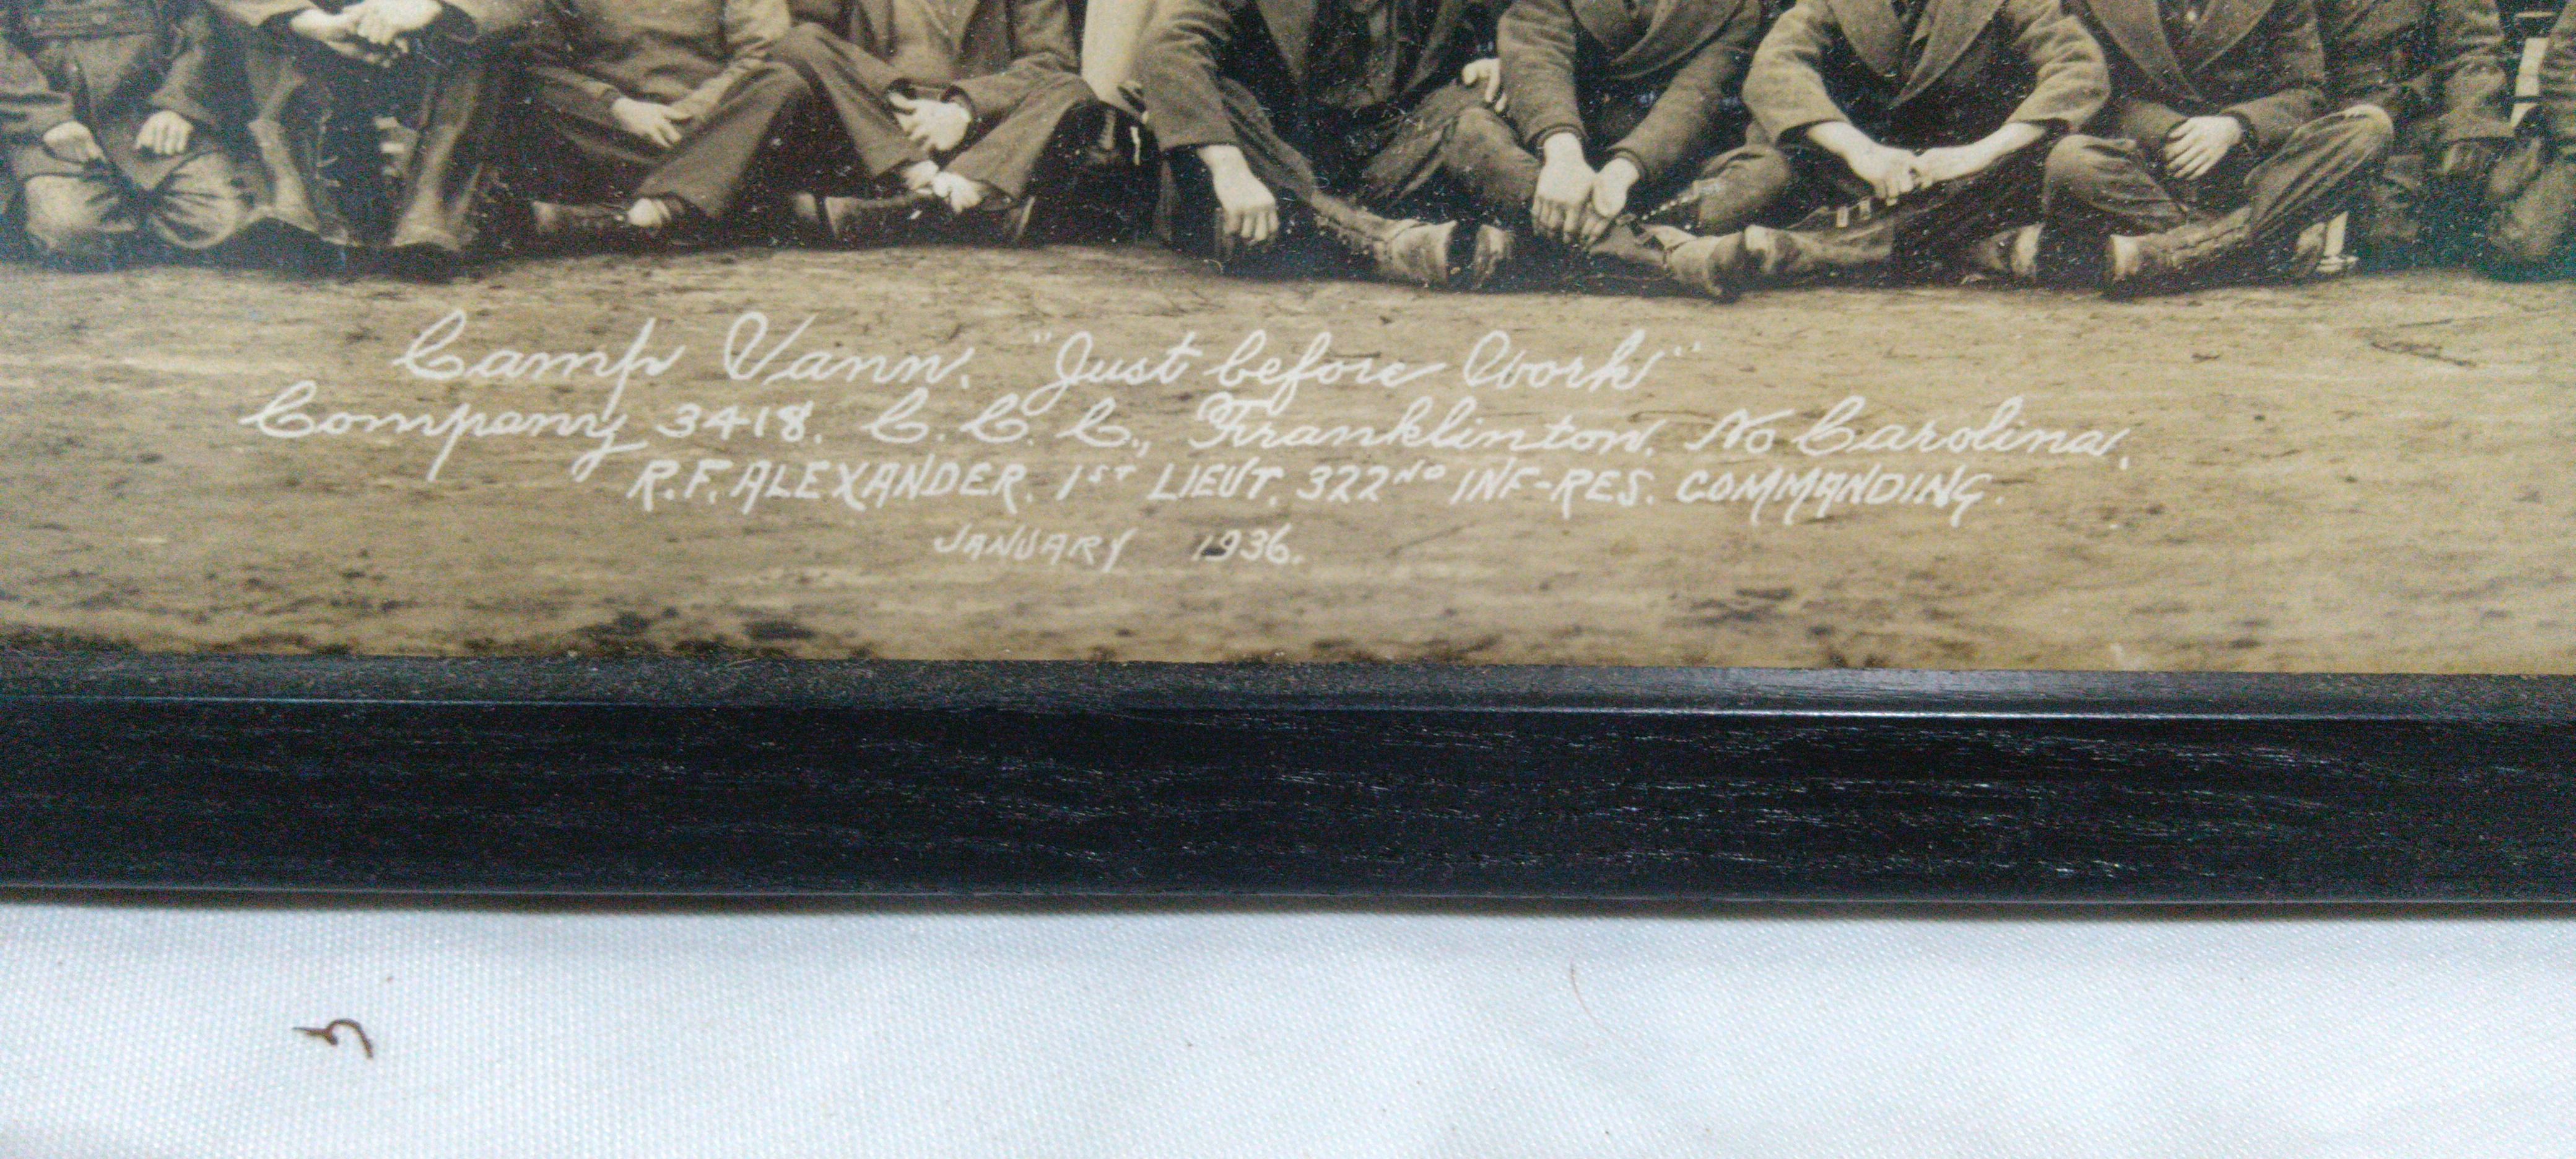 Camp Vann. "Just before Work"
Company 3418. C. C. C., Franklinton. No Carolina.
R.F. ALEXANDER. 1ST LIEUT. 322ND INF-RES. COMMANDING.
JANUARY 1936.